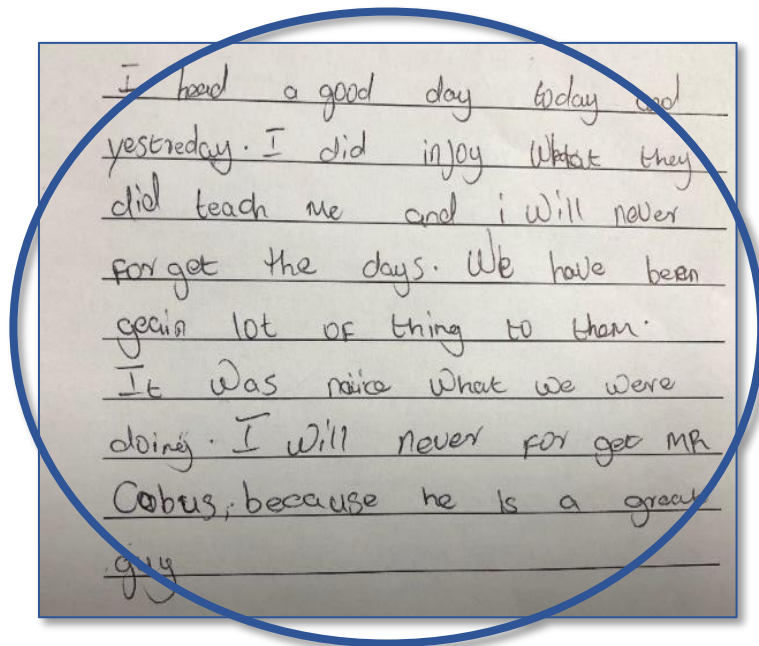 I head a good day today and
yestreday. I did injoy What they
did teach me and i will never
for get the days. We have been
geain lot of thing to them.
It was naiice what we were
doing. I will never for get MR
Cobus, because he is a great
guy